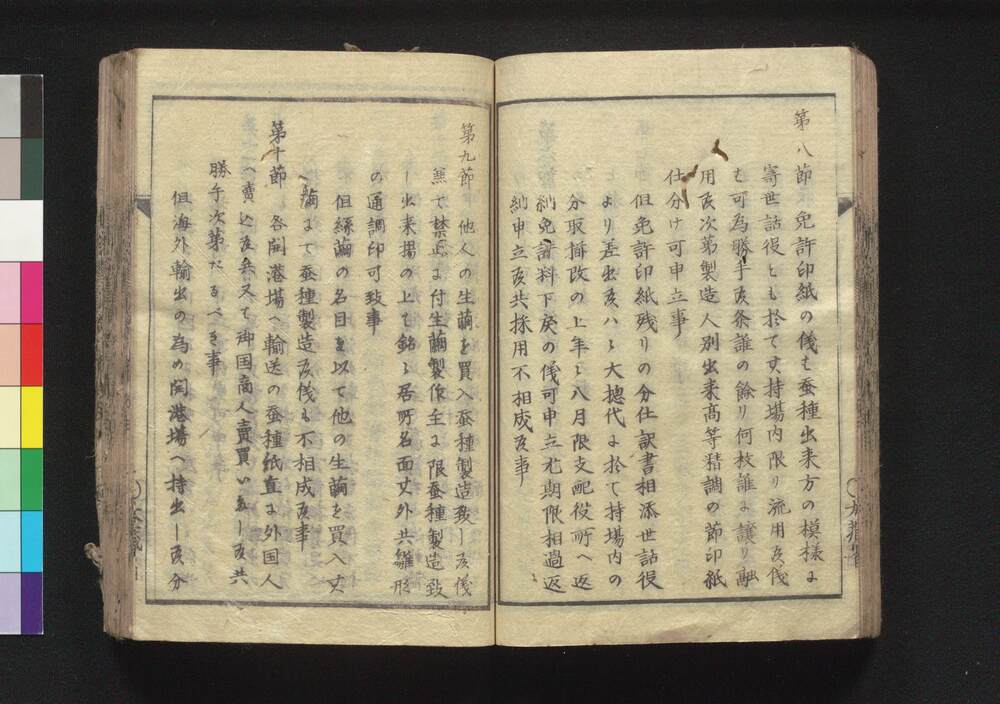 第八節 免許印紙の儀も蚕種出来方の模様に
寄世話役とも於て其持場内限り流用致儀
も可為勝手致条誰の餘り何枚誰に譲り融
用致次第製造人別出来高等精調の節印紙
仕分け可申立事
但免許印紙残りの分仕訳書相添世話役
より差出致ハヽ大捴代に於て持場内の
分取揃改の上年々八月限支配役所へ返
納免許料下戻の儀可申立尤期限相過返
納申立致共採用不相成致事
第九節 他人の生繭を買入蚕種製造致し致儀
無て禁止に付生繭製作主に限蚕種製造致
し出来揚の上て銘々居所名面其外共雛形
の通調印可致事
但絲繭の名目を以て他の生繭を買入其
繭にて蚕種製造致儀も不相成致事
第十節 各開港場へ輸送の蚕種紙直に外国人
へ賣込致共又て御国商人賣買いたし致共
勝手次第たるべき事
但海外輸出の為め開港場へ持出し致分